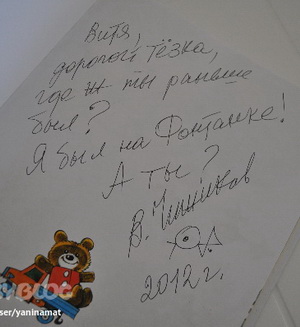 Витя,
дорогой тёзка,
где ты раньше
был?
Я был на Фонтанке!
А ты?
В. Чижиков
2012 г.
BLOG
ser/yaninamat